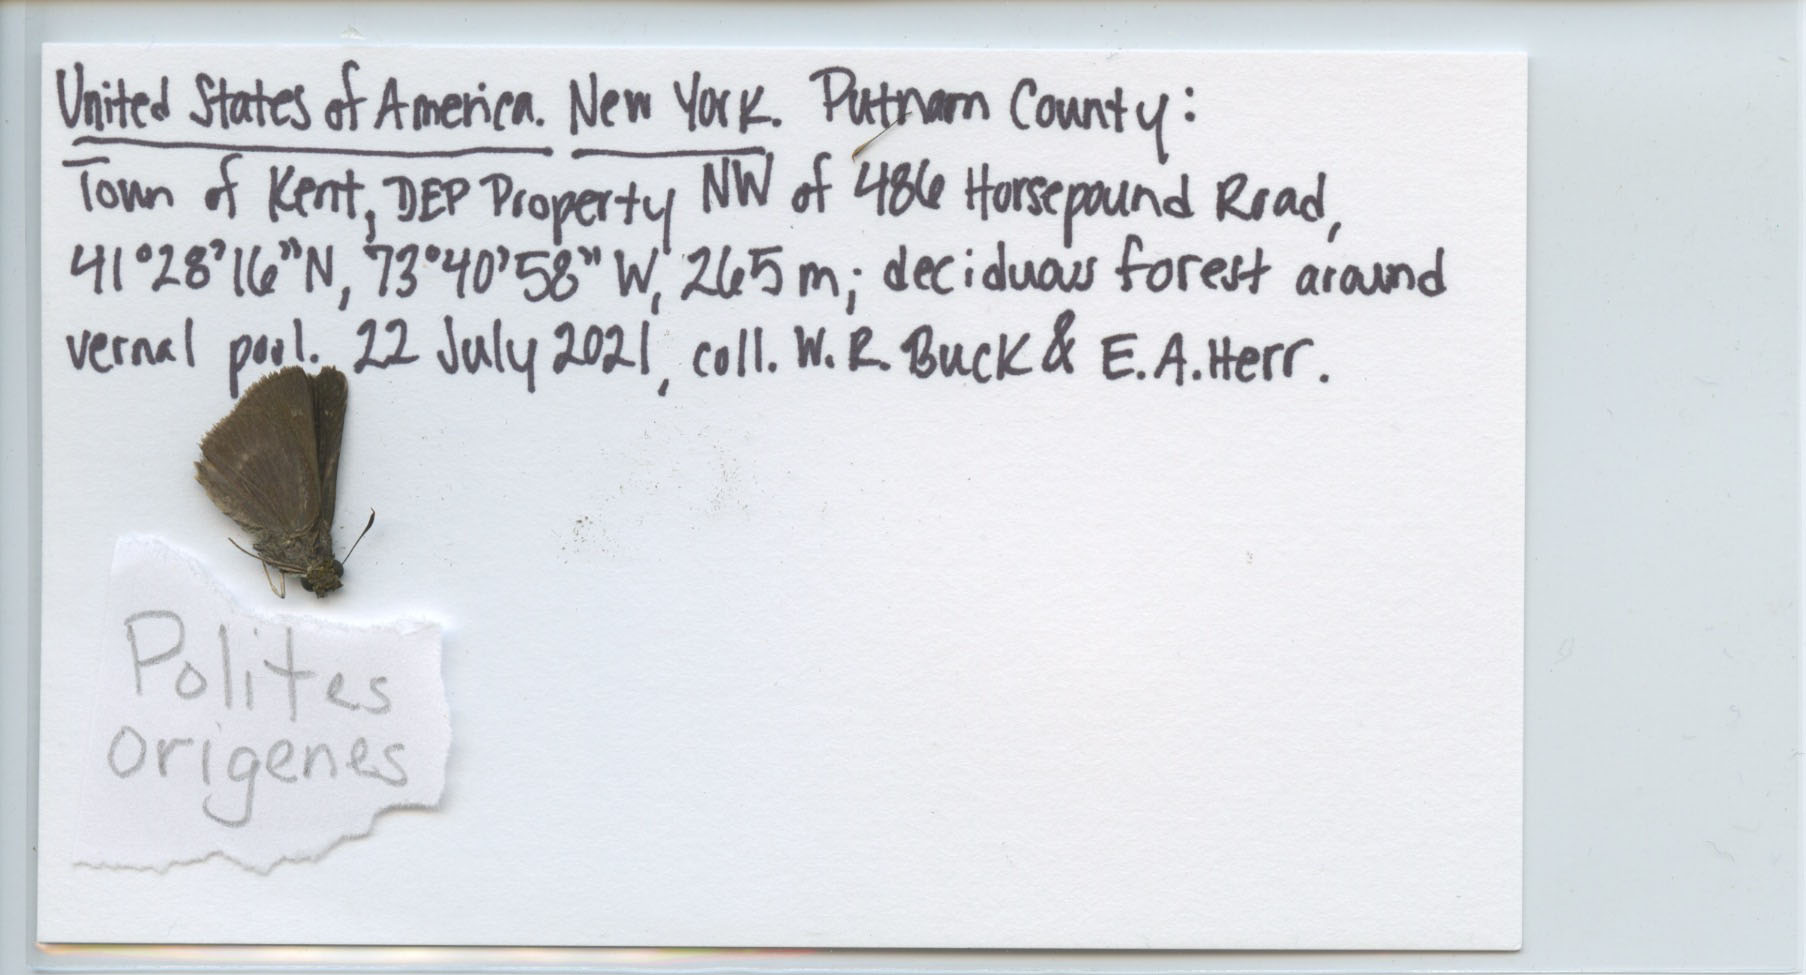 United States of America. New York. Putnam County:
Town of Kent, DEP Property NW of 486 Horsepound Road,
41°28'16"N, 73°40'58" W, 265 m; deciduous forest around
vernal pool. 22 July 2021, coll. W. R. Buck & E.A. Herr.
Polites
origenes